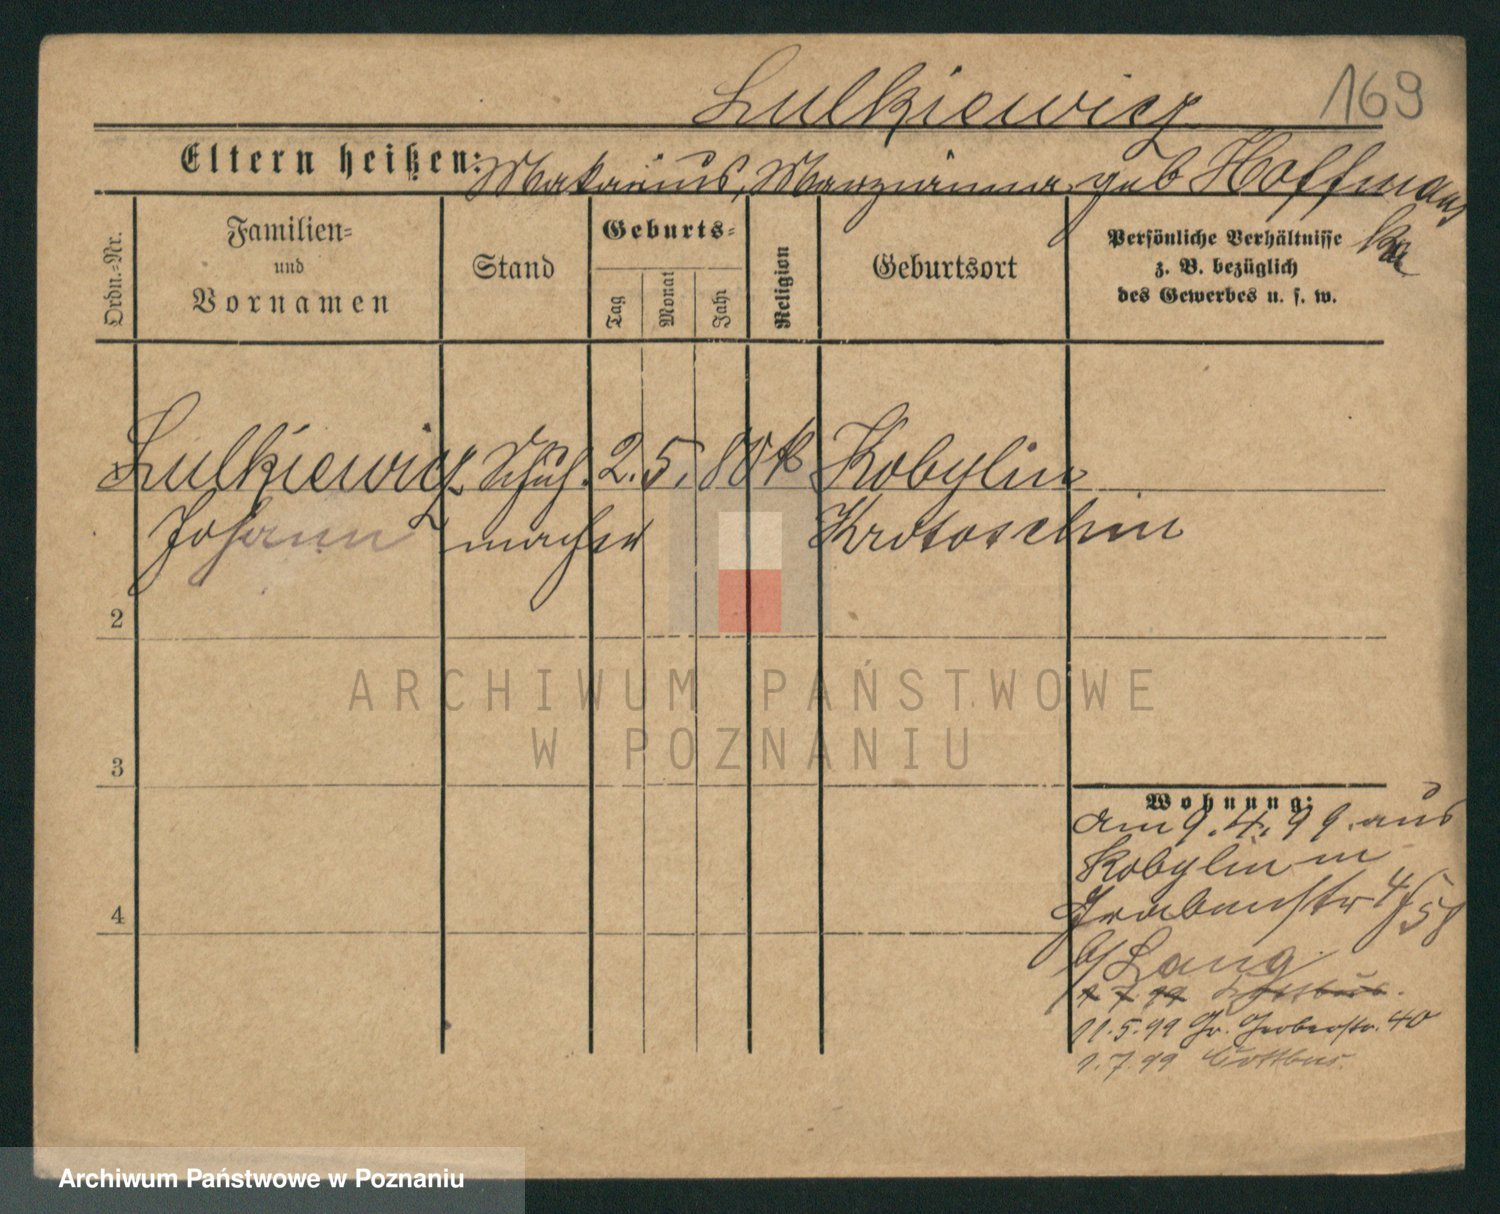 Lulkiewicz 169
Eltern heißen: Makarius, Marzianna geb Hoffmans
ka
Ordn.=Nr.
Familien=
und
Vornamen
Stand
Geburts=
Tag
Monat
Jahr
Religion
Geburtsort
Persönliche Verhältnisse
z. B. bezüglich
des Gewerbes u. s. w.
Lulkiewicz Schuh- 2. 5. 80 k Kobylin
Johann macher Krotoschin
2
3
4
Wohnung:
am 9.4.99. aus
Kobylin in
Grabenstr 4/5
b/ Lang
1.7.99 Cottbus.
11.5.99 Gr. Gerberstr. 40
1.7.99 Cottbus.
ARCHIWUM PAŃSTWOWE
W POZNANIU
Archiwum Państwowe w Poznaniu